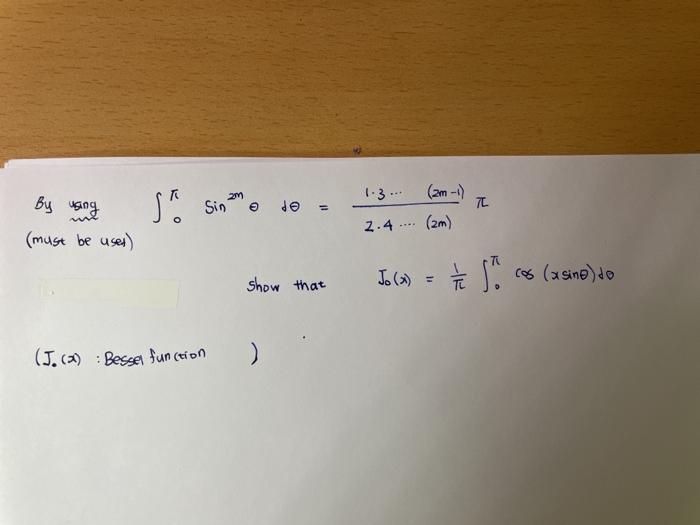 By using ∫₀^π Sin^2m θ dθ = 1·3··· (2m-1) / 2·4···· (2m) π
(must be used)
Show that J₀(x) = 1/π ∫₀^π cos (x sinθ) dθ
(J₀(x) : Bessel function )